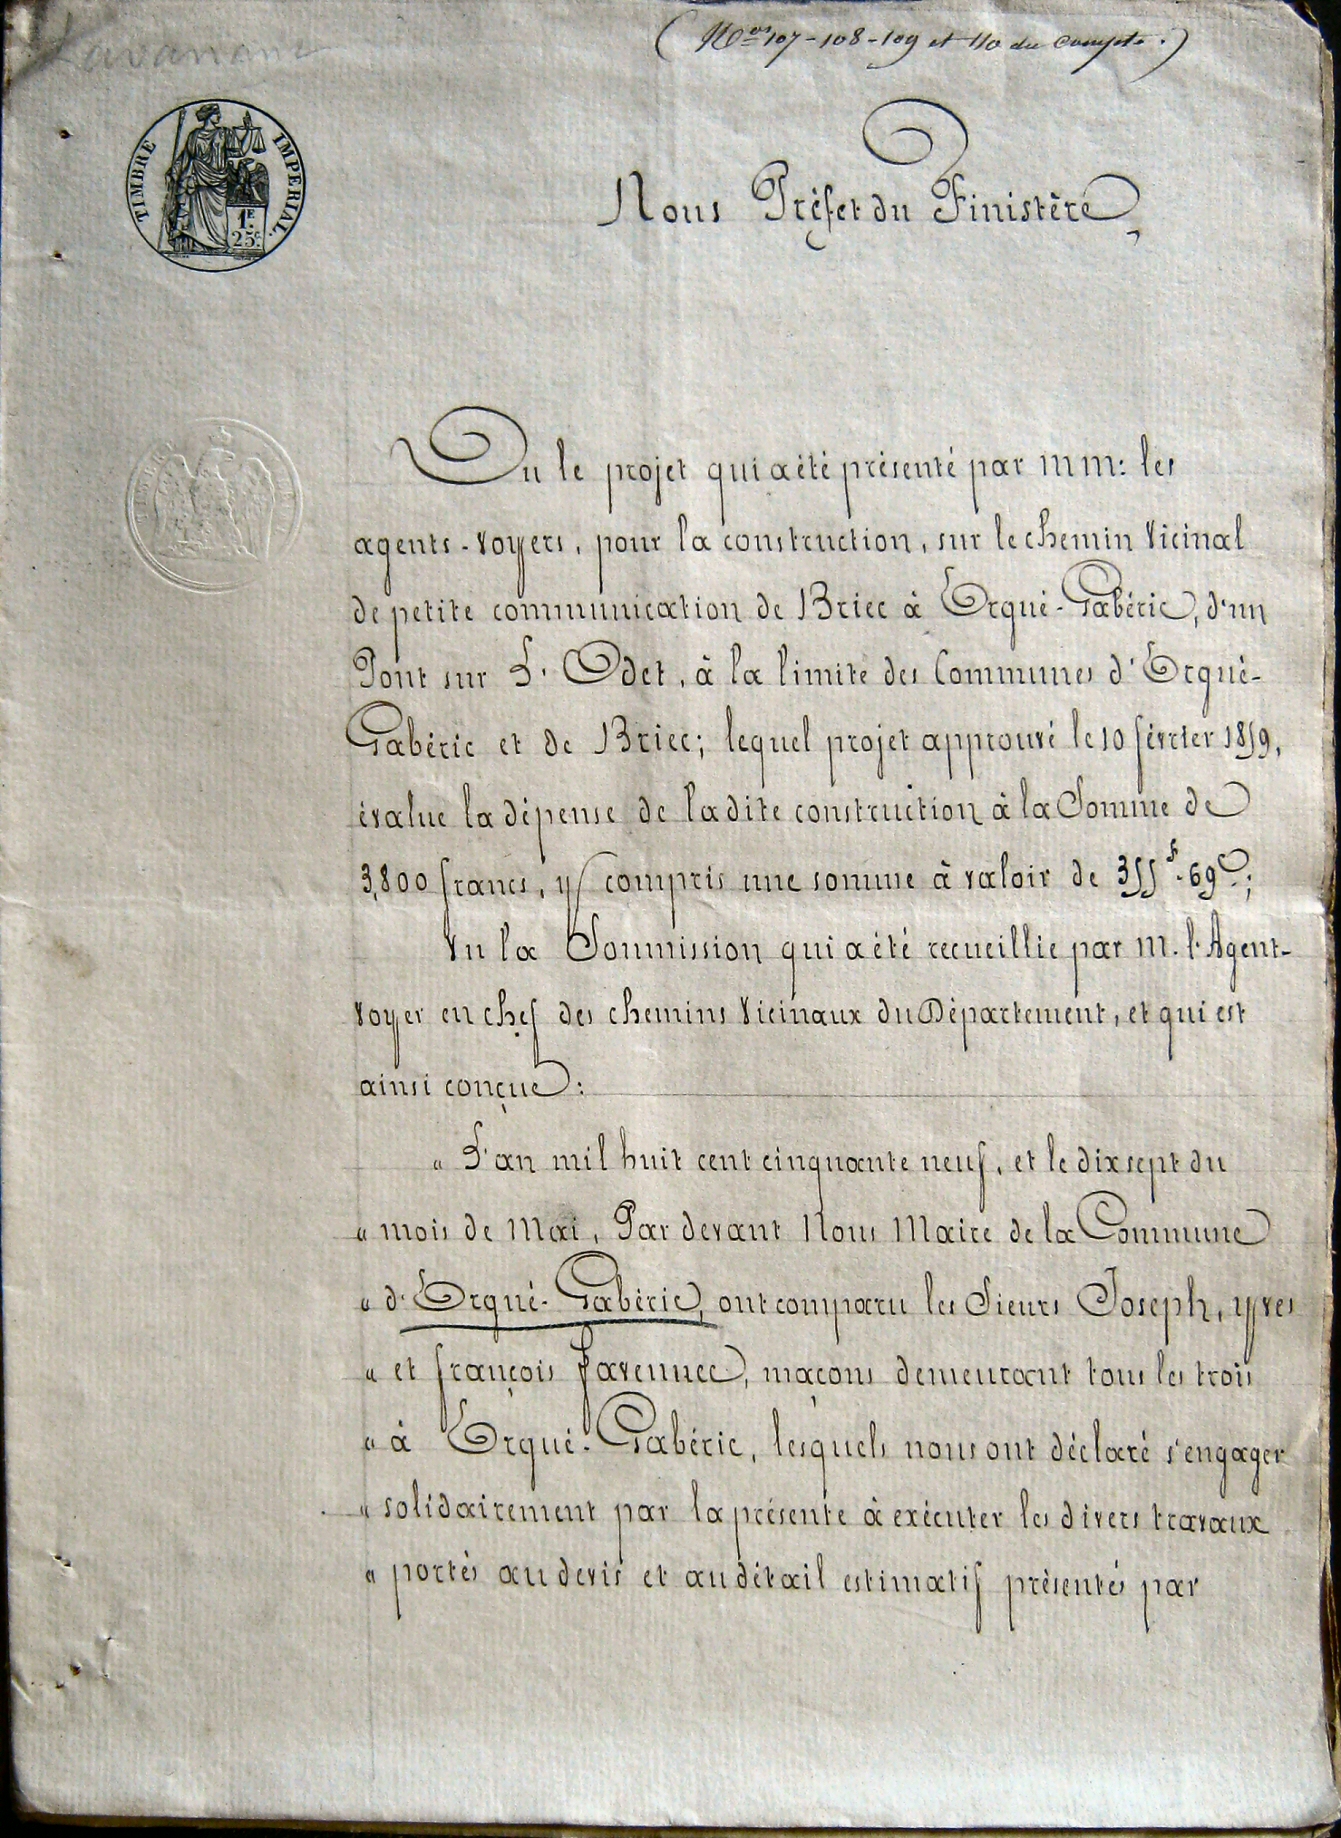 (Nos 107-108-109 et 110 du compte.)
TIMBRE IMPERIAL.
1F.
25c.
Nous Préfet du Finistère,
Vu le projet qui a été présenté par MM: les
agents-voyers, pour la construction, sur le chemin vicinal
de petite communication de Briec à Ergué-Gabéric, d'un
Pont sur L'Odet, à la limite des Communes d'Ergué-
Gabéric et de Briec; lequel projet approuvé le 10 février 1859,
évalue la dépense de ladite construction à la Somme de
3,800 francs, y compris une somme à valoir de 355f.69c.;
Vu la Soumission qui a été recueillie par M. l'Agent-
voyer en chef des chemins vicinaux du Département, et qui est
ainsi conçue:
" L'an mil huit cent cinquante neuf, et le dix sept du
" mois de Mai, Par devant Nous Maire de la Commune
" d'Ergué-Gabéric, ont comparu les Sieurs Joseph, yves
" et françois favennec, maçons demeurant tous les trois
" à Ergué-Gabéric, lesquels nous ont déclaré s'engager
" solidairement par la présente à exécuter les divers travaux
" portés au devis et au détail estimatif présentés par